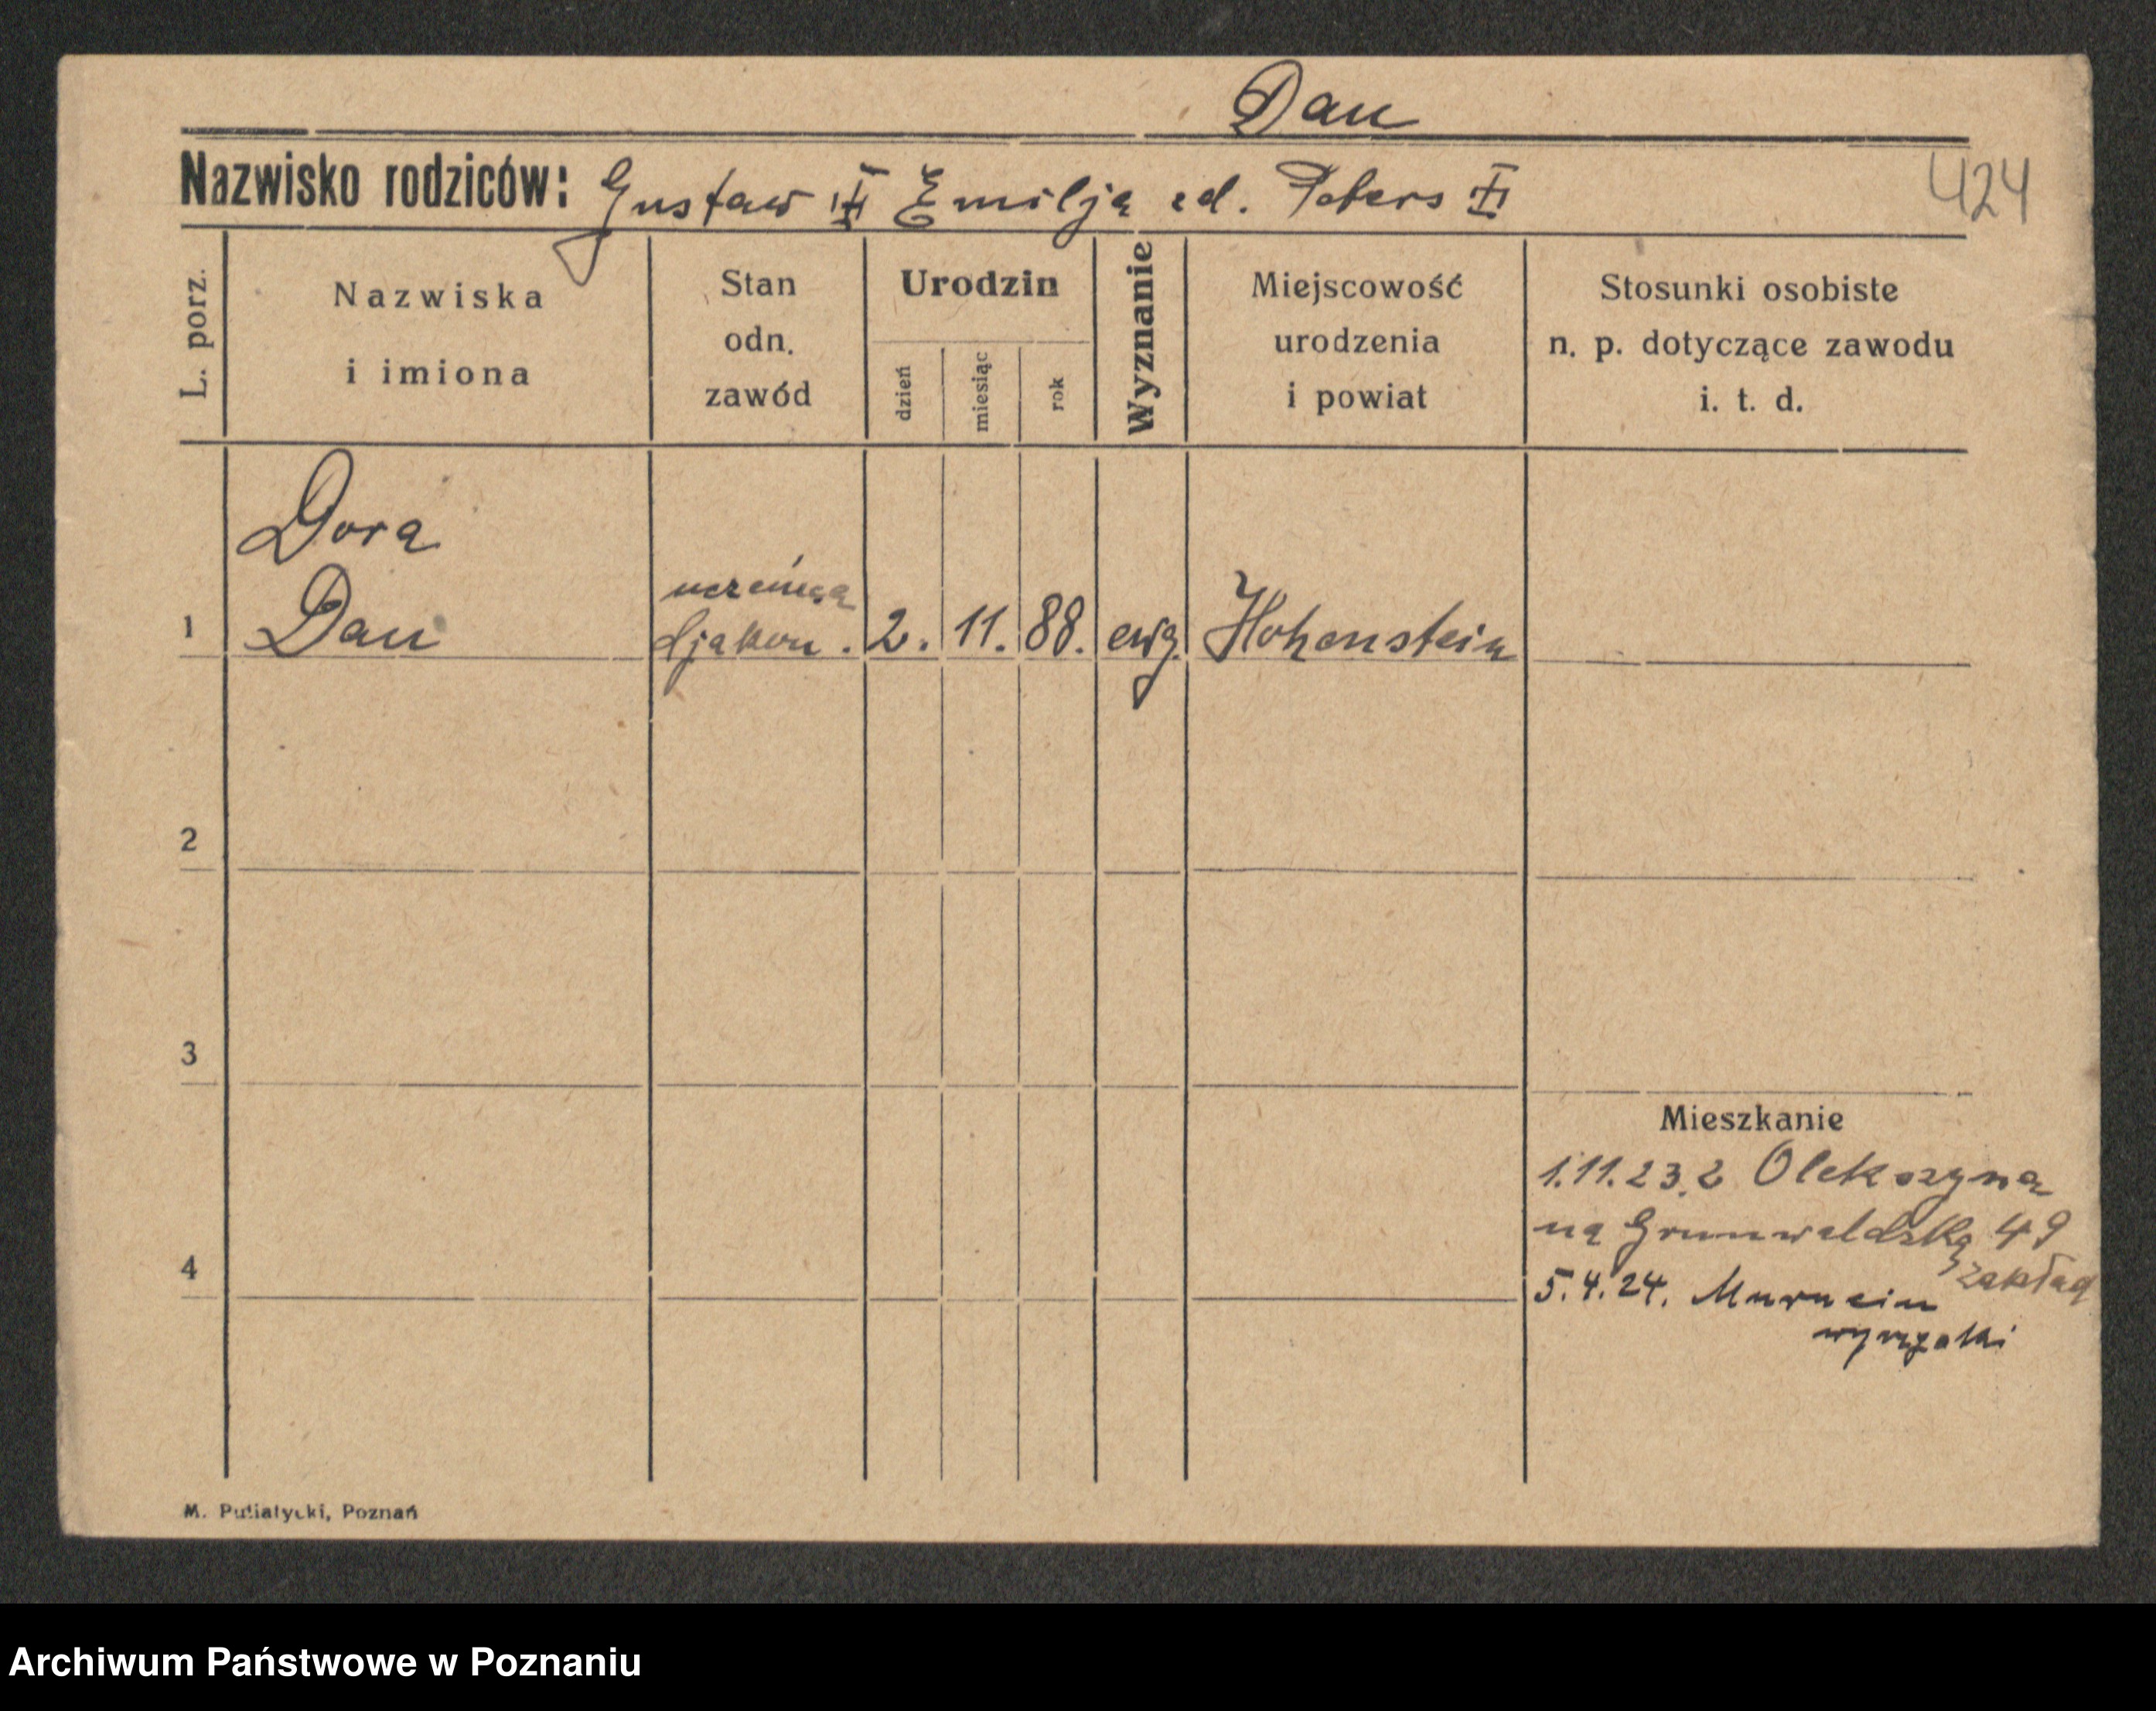 Dau
Nazwisko rodziców: Gustaw Emilja zd. Peters
424
L. porz.
Nazwiska
i imiona
Stan
odn.
zawód
Urodzin
dzień
miesiąc
rok
Wyznanie
Miejscowość
urodzenia
i powiat
Stosunki osobiste
n. p. dotyczące zawodu
i. t. d.
Dora
Dau
1
djakon.
2. 11. 88. ewg. Hohenstein
2
3
4
Mieszkanie
1.11.23. z Olekszyna
na Grunwaldzką 49
zakład
5.4.24. Murucin
wyrzyski
M. Putiatycki, Poznań
Archiwum Państwowe w Poznaniu